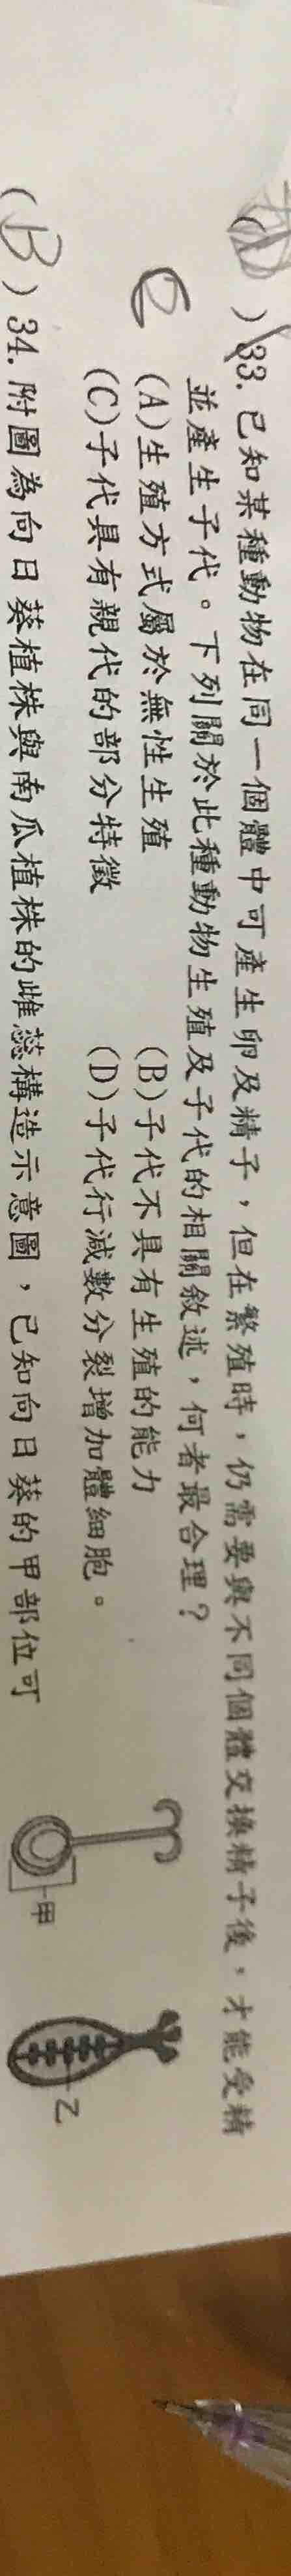 ( D ) 33. 已知某種動物在同一個體中可產生卵及精子，但在繁殖時，仍需要與不同個體交換精子後，才能受精
並產生子代。下列關於此種動物生殖及子代的相關敘述，何者最合理？
C
(A)生殖方式屬於無性生殖 (B)子代不具有生殖的能力
(C)子代具有親代的部分特徵 (D)子代行減數分裂增加體細胞。
( B ) 34. 附圖為向日葵植株與南瓜植株的雌蕊構造示意圖，已知向日葵的甲部位可
甲
乙